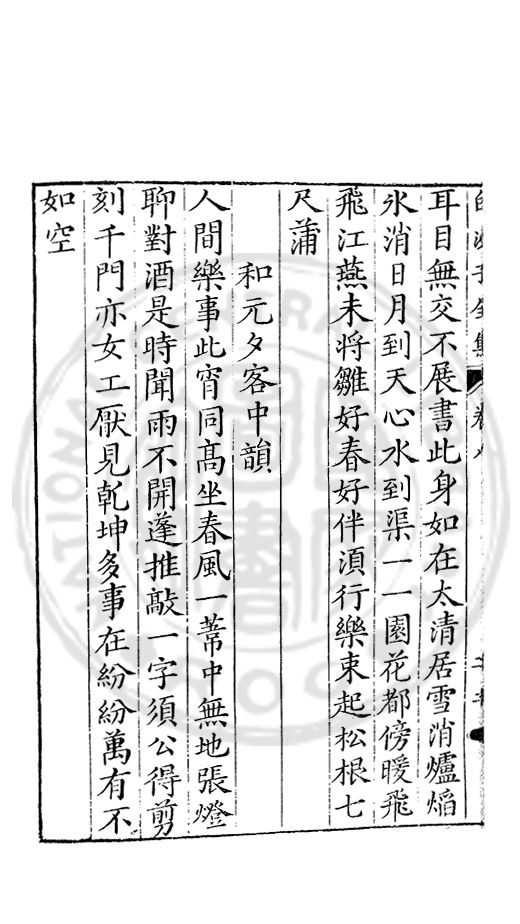 白沙子全集 卷
耳目無交不展書此身如在太清居雪消爐焰
氷消日月到天心水到渠一一園花都傍暖飛
飛江燕未將雛好春好伴湏行樂束起松根七
尺蒲
和元夕客中韻
人間樂事此宵同髙坐春風一蓆中無地張燈
聊對酒是時聞雨不開蓬推敲一字須公得剪
刻千門亦女工厭見乾坤多事在紛紛萬有不
如空